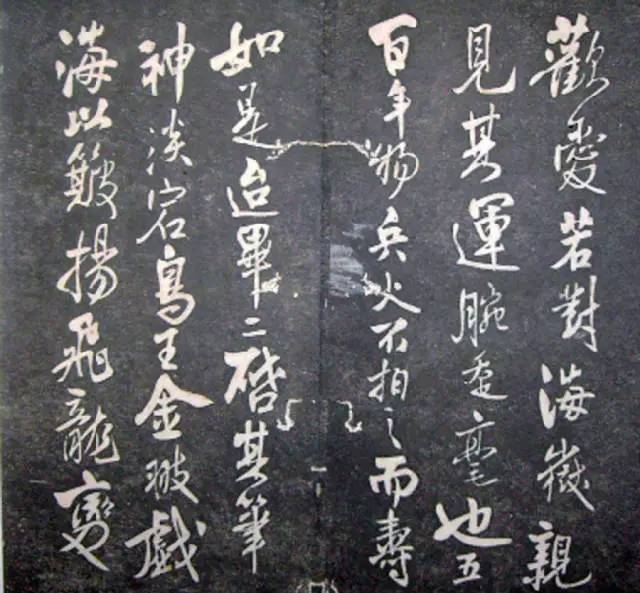 歡愛若對海嶽親
見其運腕垂毫也五
百年物兵火不拍之而壽
如是迨畢二啓其筆
神淡宕鳥王金翅戲
海以簸揚飛龍變